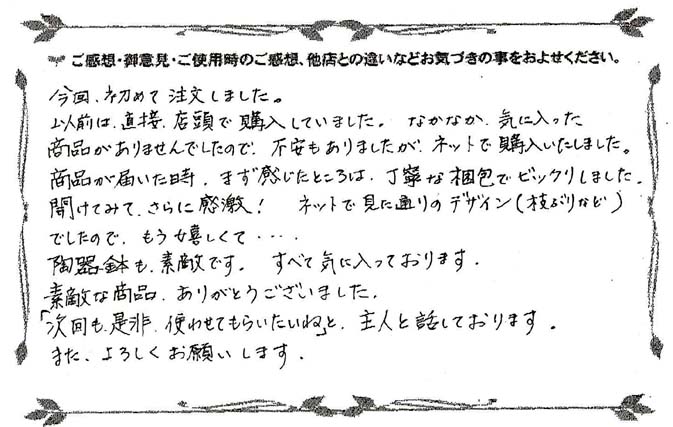 ご感想・御意見・ご使用時のご感想、他店との違いなどお気づきの事をおよせください。
今回、初めて注文しました。
以前は、直接、店頭で購入していました。なかなか、気に入った
商品がありませんでしたので、不安もありましたが、ネットで購入いたしました。
商品が届いた時、まず感じたところは、丁寧な梱包でビックリしました。
開けてみて、さらに感激！ネットで見た通りのデザイン（枝ぶりなど）
でしたので、もう嬉しくて・・・・
陶器鉢も、素敵です。すべて気に入っております。
素敵な商品、ありがとうございました。
「次回も、是非、使わせてもらいたいね」と、主人と話しております。
また、よろしくお願いします。